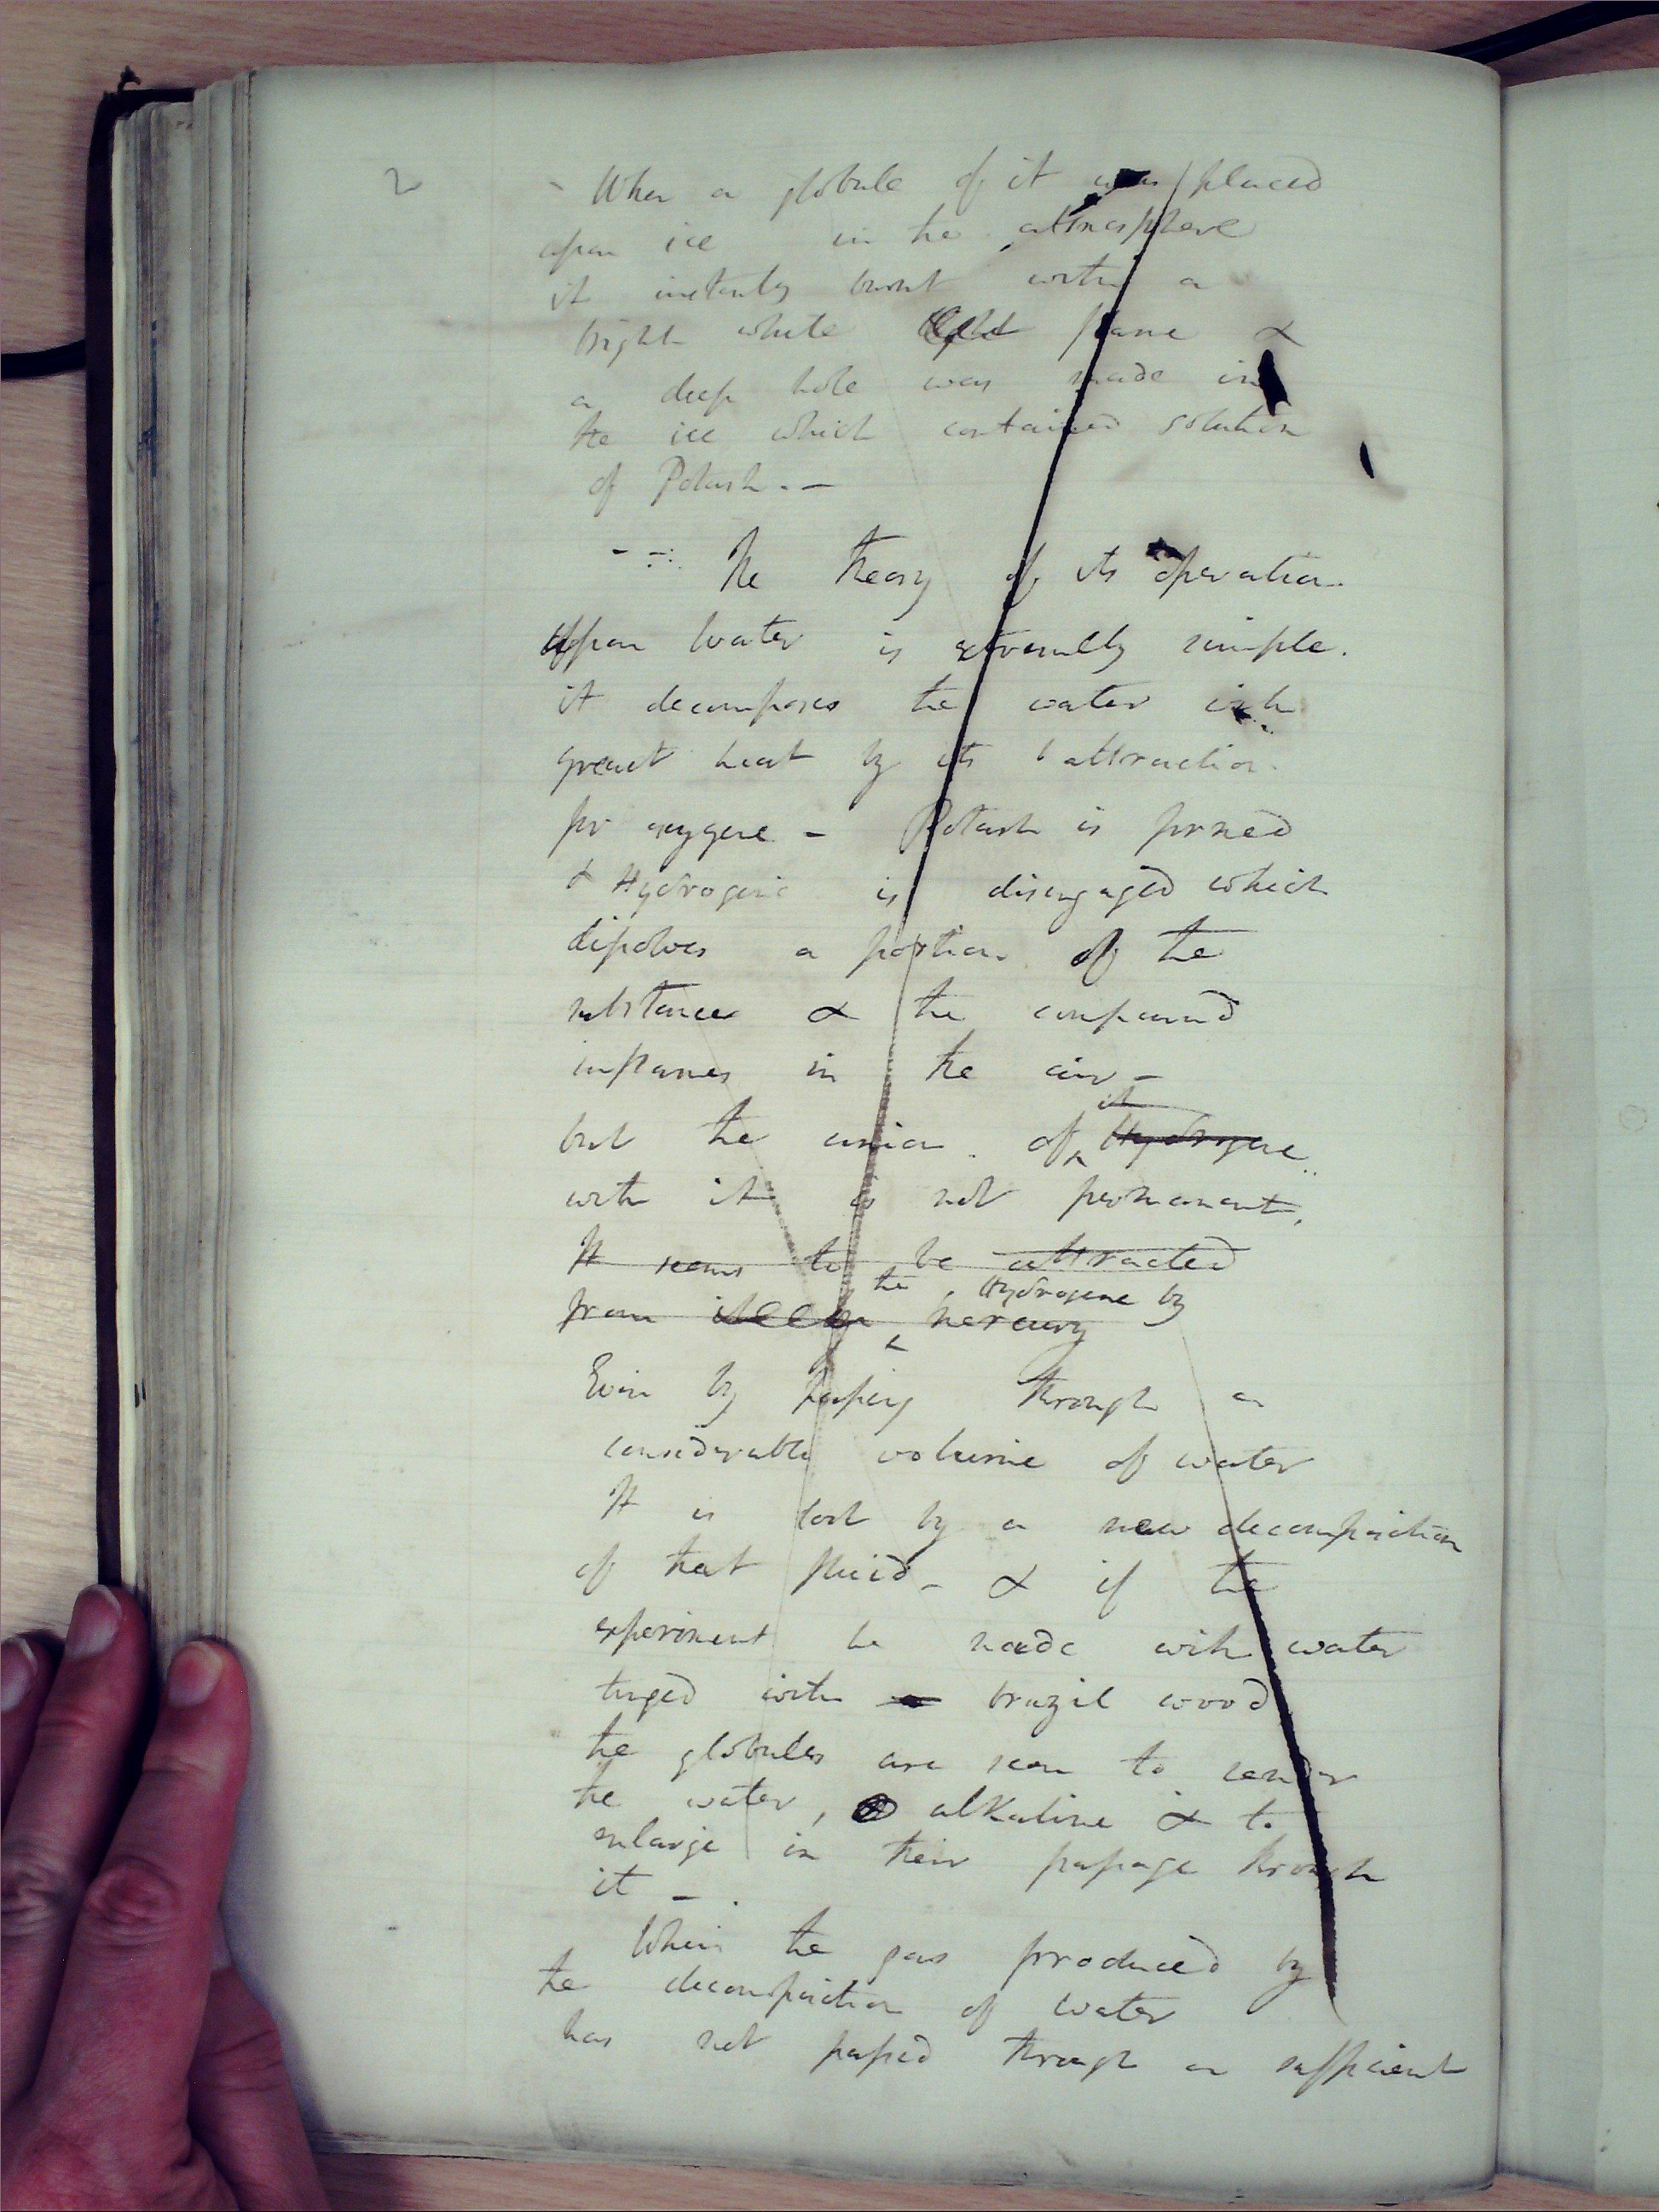 2
When a globule of it was placed
upon ice in the atmosphere
it instantly burnt with a
bright white light flame &
a deep hole was made in
the ice which contained solution
of Potash. —
The theory of its operation
Upon water is extremely simple.
it decomposes the water with
great heat by its attraction
for oxygene — Potash is formed
& Hydrogene is disengaged which
dissolves a portion of the
substance & the compound
inflames in the air —
it
but the union of Hydrogene
with it is not permanent,
It seems to be attracted
the Hydrogene by
from mercury
Even by passing through a
considerable volume of water
It is lost by a new decomposition
of that fluid — & if the
experiment be made with water
tinged with brazil wood
the globules are seen to render
the water, alkaline & to
enlarge in their passage through
it —.
When the gas produced by
the decomposition of water
has not passed through a sufficient